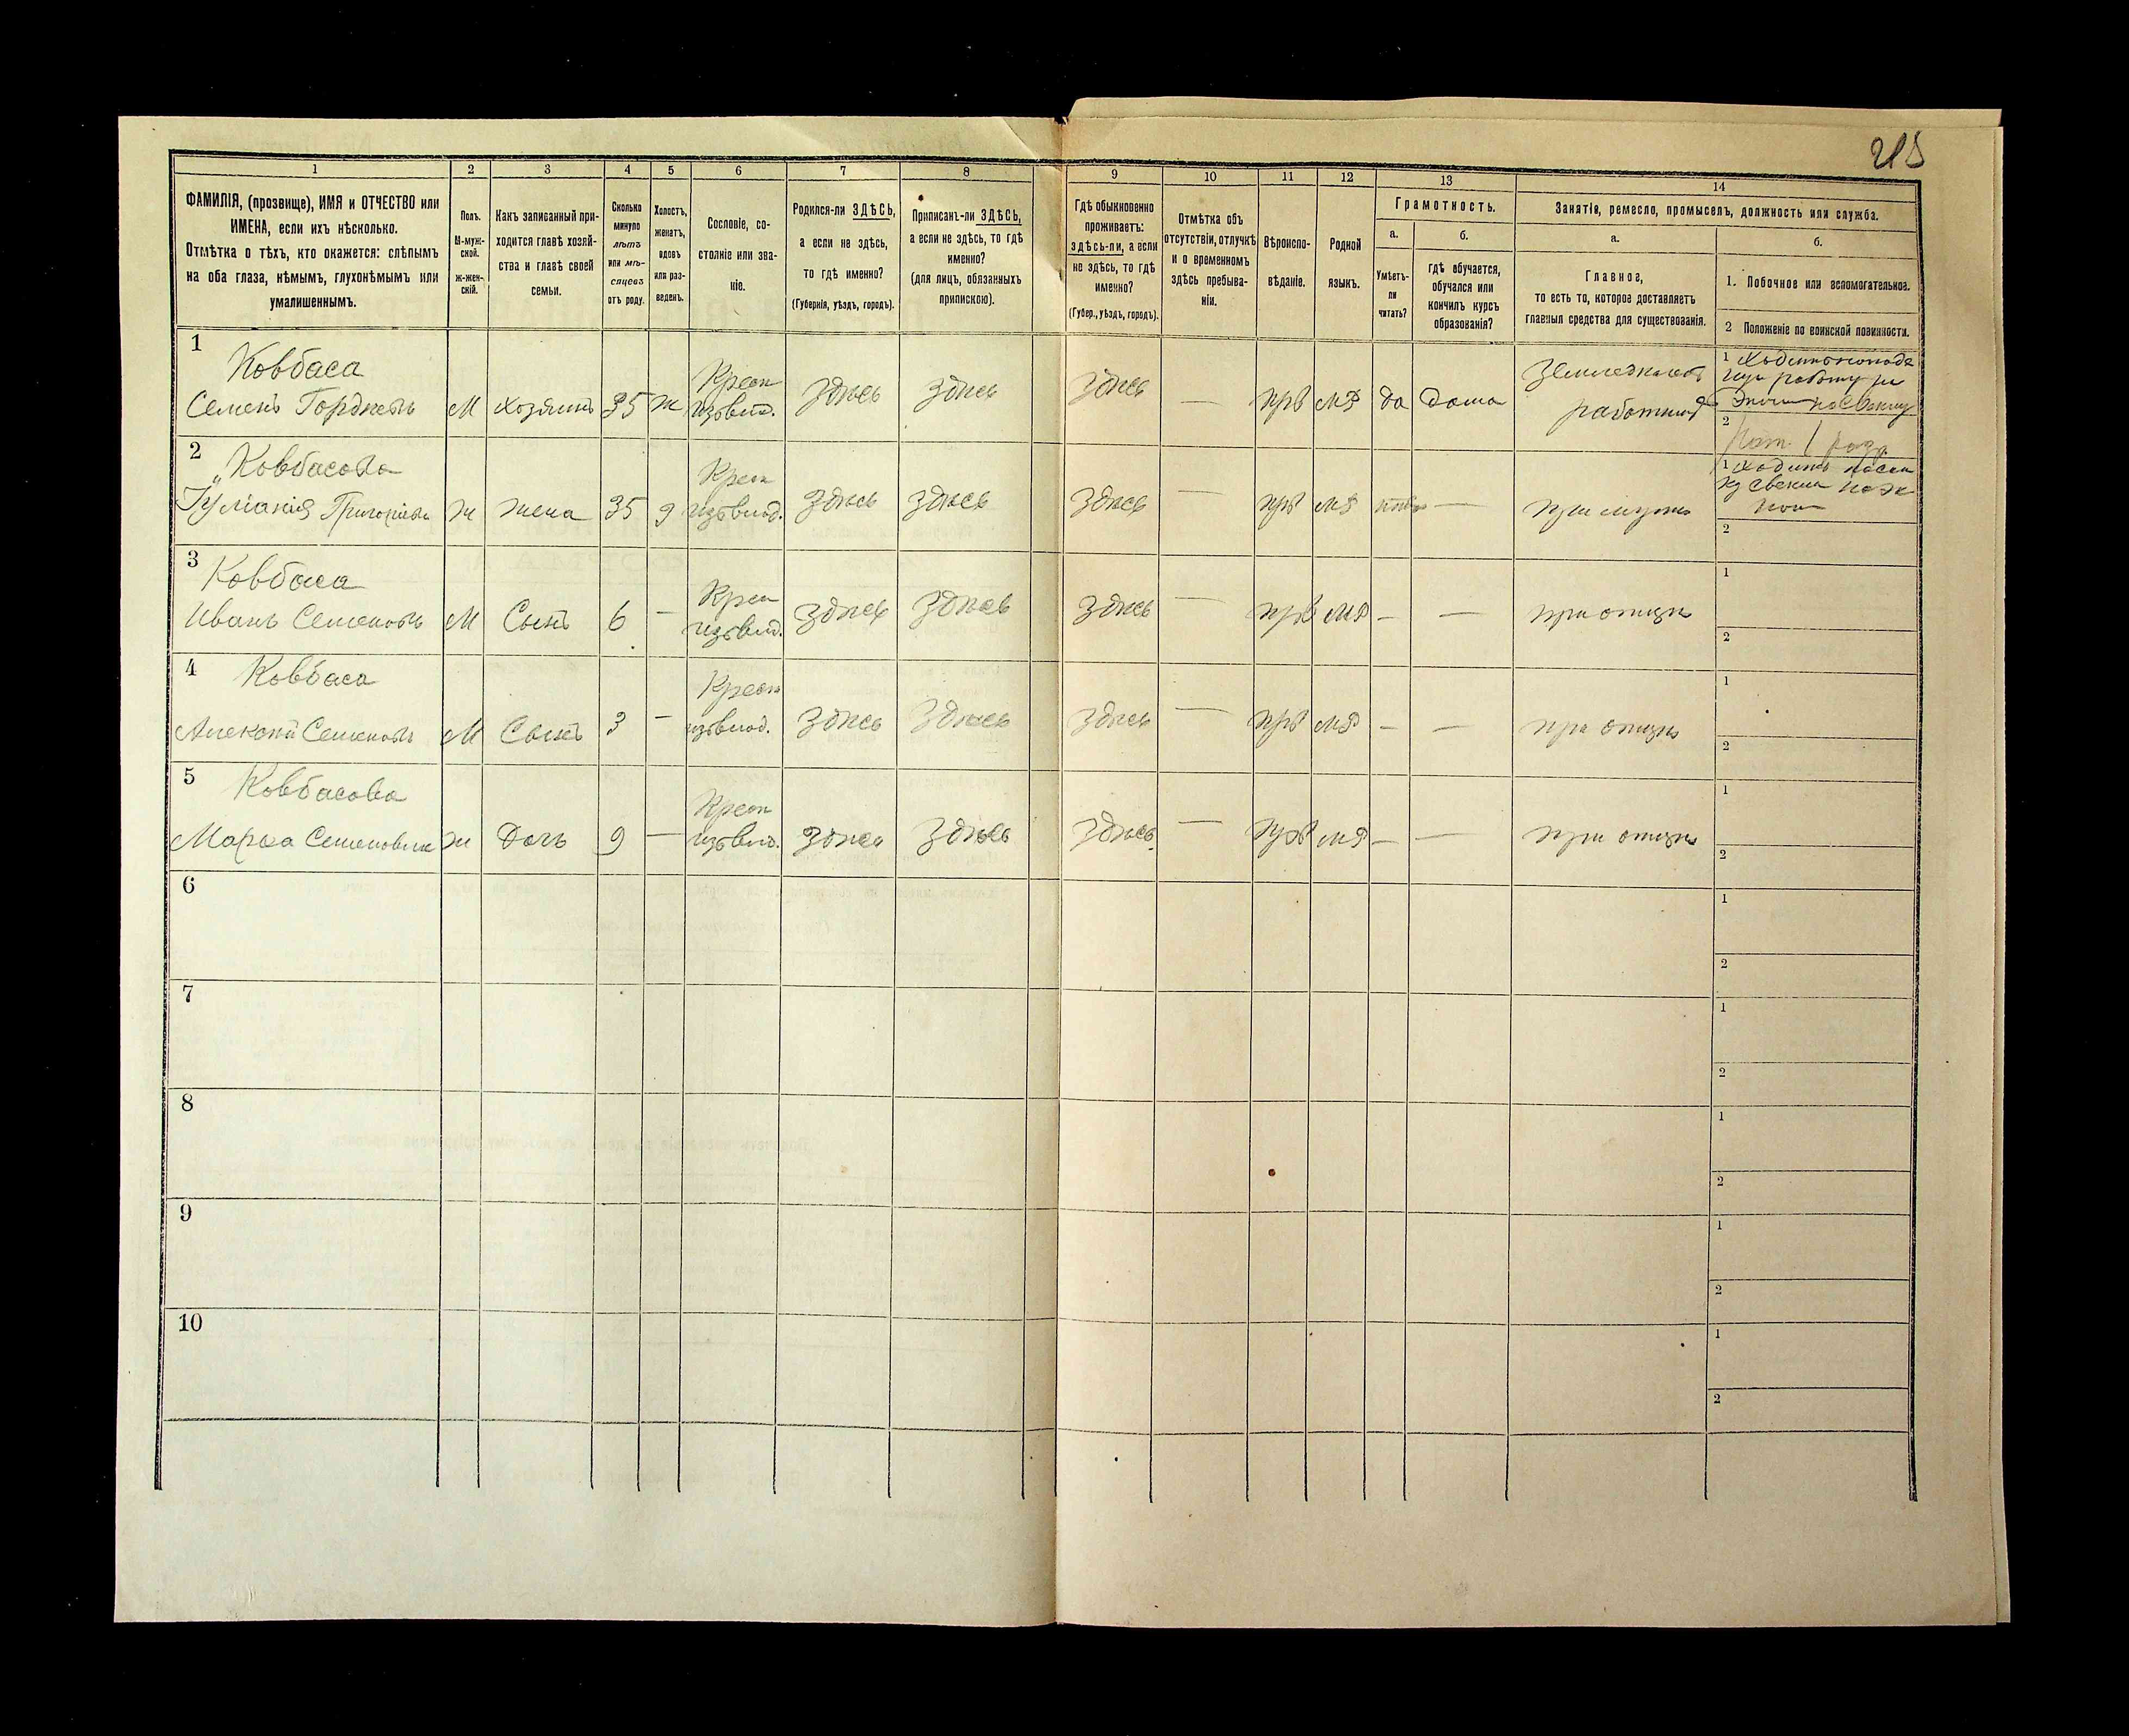 215
1 2 3 4 5 6 7 8 9 10 11 12 13 14
ФАМИЛІЯ, (прозвище), ИМЯ и ОТЧЕСТВО или
ИМЕНА, если ихъ нѣсколько.
Отмѣтка о тѣхъ, кто окажется: слѣпымъ
на оба глаза, нѣмымъ, глухонѣмымъ или
умалишеннымъ.
Полъ.
М-муж-
ской.
ж-жен-
скій.
Какъ записанный при-
ходится главѣ хозяй-
ства и главѣ своей
семьи.
Сколько
минуло
лѣтъ
или мѣ-
сяцевъ
отъ роду.
Холостъ,
женатъ,
вдовъ
или раз-
веденъ.
Сословіе, со-
стояніе или зва-
ніе.
Родился-ли ЗДѢСЬ,
а если не здѣсь,
то гдѣ именно?
(Губернія, уѣздъ, городъ).
Приписанъ-ли ЗДѢСЬ,
а если не здѣсь, то гдѣ
именно?
(для лицъ, обязанныхъ
припискою).
Гдѣ обыкновенно
проживаетъ:
здѣсь-ли, а если
не здѣсь, то гдѣ
именно?
(Губер., уѣздъ, городъ).
Отмѣтка объ
отсутствіи, отлучкѣ
и о временномъ
здѣсь пребыва-
ніи.
Вѣроиспо-
вѣданіе.
Родной
языкъ.
Грамотность.
а.
Умѣетъ-
ли
читать?
б.
гдѣ обучается,
обучался или
кончилъ курсъ
образованія?
Занятіе, ремесло, промыселъ, должность или служба.
а.
Главное,
то есть то, которое доставляетъ
главныя средства для существованія.
б.
1. Побочное или вспомогательное.
2 Положеніе по воинской повинности.
1
Ковбаса
Семенъ Гордѣевъ М хозяинъ 35 ж Крест. изъ влад. здѣсь здѣсь здѣсь — прв мр да дома работникъ
1
2
2
Ковбасова
Григорьева ж жена 35 з Крест. изъ влад. здѣсь здѣсь здѣсь — прв мр нѣтъ — при мужѣ
1 Ходитъ
2
3
Ковбаса
Иванъ Семеновъ М Сынъ 6 — Крест. изъ влад. здѣсь здѣсь здѣсь — прв мр — — при отцѣ
1
2
4
Ковбаса
Алексѣй Семеновъ М Сынъ 3 — Крест. изъ влад. здѣсь здѣсь здѣсь — прв мр — — при отцѣ
1
2
5
Ковбасова
Семеновна ж Дочь 9 — Крест. изъ влад. здѣсь здѣсь здѣсь — прв мр — — при отцѣ
1
2
6
1
2
7
1
2
8
1
2
9
1
2
10
1
2